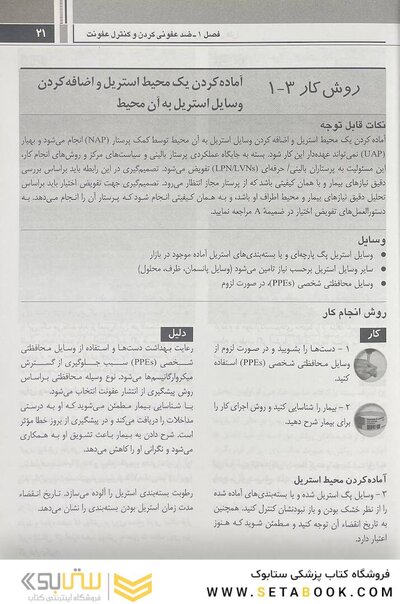 فصل ۱ - ضد عفونی کردن و کنترل عفونت
۲۱
روش کار ۳-۱
آماده کردن یک محیط استریل و اضافه کردن
وسایل استریل به آن محیط
نکات قابل توجه
آماده کردن یک محیط استریل و اضافه کردن وسایل استریل به آن محیط توسط کمک پرستار (NAP) انجام می‌شود و بهیار
(UAP) نمی‌تواند عهده‌دار این کار شود. بسته به جایگاه عملکردی پرستار بالینی و سیاست‌های مرکز و روش‌های انجام کار،
این مسئولیت به پرستاران بالینی/ حرفه‌ای (LPN/LVNs) تفویض می‌شود. تصمیم‌گیری در این رابطه باید براساس بررسی
دقیق نیازهای بیمار و با همان کیفیتی باشد که از پرستار مجاز انتظار می‌رود. تصمیم‌گیری جهت تفویض اختیار باید براساس
تحلیل دقیق نیازهای بیمار و محیط اطراف او باشد، و به همان کیفیتی انجام شود که پرستار آن را انجام می‌دهد. به
دستورالعمل‌های تفویض اختیار در ضمیمه A مراجعه نمایید.
وسایل
وسایل استریل پگ پارچه‌ای و یا بسته‌بندی‌های استریل آماده موجود در بازار
سایر وسایل استریل برحسب نیاز تامین می‌شود (وسایل پانسمان، ظرف، محلول)
وسایل محافظتی شخصی (PPEs)، در صورت لزوم
روش انجام کار
کار
۱ - دست‌ها را بشویید و در صورت لزوم از
وسایل محافظتی شخصی (PPEs) استفاده
کنید.
۲ - بیمار را شناسایی کنید و روش اجرای کار را
برای بیمار شرح دهید.
آماده کردن محیط استریل
۳ - وسایل پگ استریل شده و یا بسته‌بندی‌های آماده شده
را از نظر خشک بودن و باز نبودنشان کنترل کنید. همچنین
به تاریخ انقضاء آن توجه کنید و مطمئن شوید که هنوز
اعتبار دارد.
دلیل
رعایت بهداشت دست‌ها و استفاده از وسایل محافظتی
شخصی (PPEs) سبب جلوگیری از گسترش
میکروارگانیسم‌ها می‌شود. نوع وسیله محافظتی براساس
روش پیشگیری از انتشار عفونت انتخاب می‌شود.
با شناسایی بیمار مطمئن می‌شوید که او به درستی
مداخلات را دریافت می‌کند و در پیشگیری از بروز خطا مؤثر
است. شرح دادن به بیمار باعث تشویق او به همکاری
می‌شود و نگرانی او را کاهش می‌دهد.
رطوبت بسته‌بندی استریل را آلوده می‌سازد. تاریخ انقضاء
مدت زمان استریل بودن بسته‌بندی را نشان می‌دهد.
فروشگاه کتاب پزشکی ستابوک
WWW.SETABOOK.COM
ستابوک
فروشگاه اینترنتی کتاب